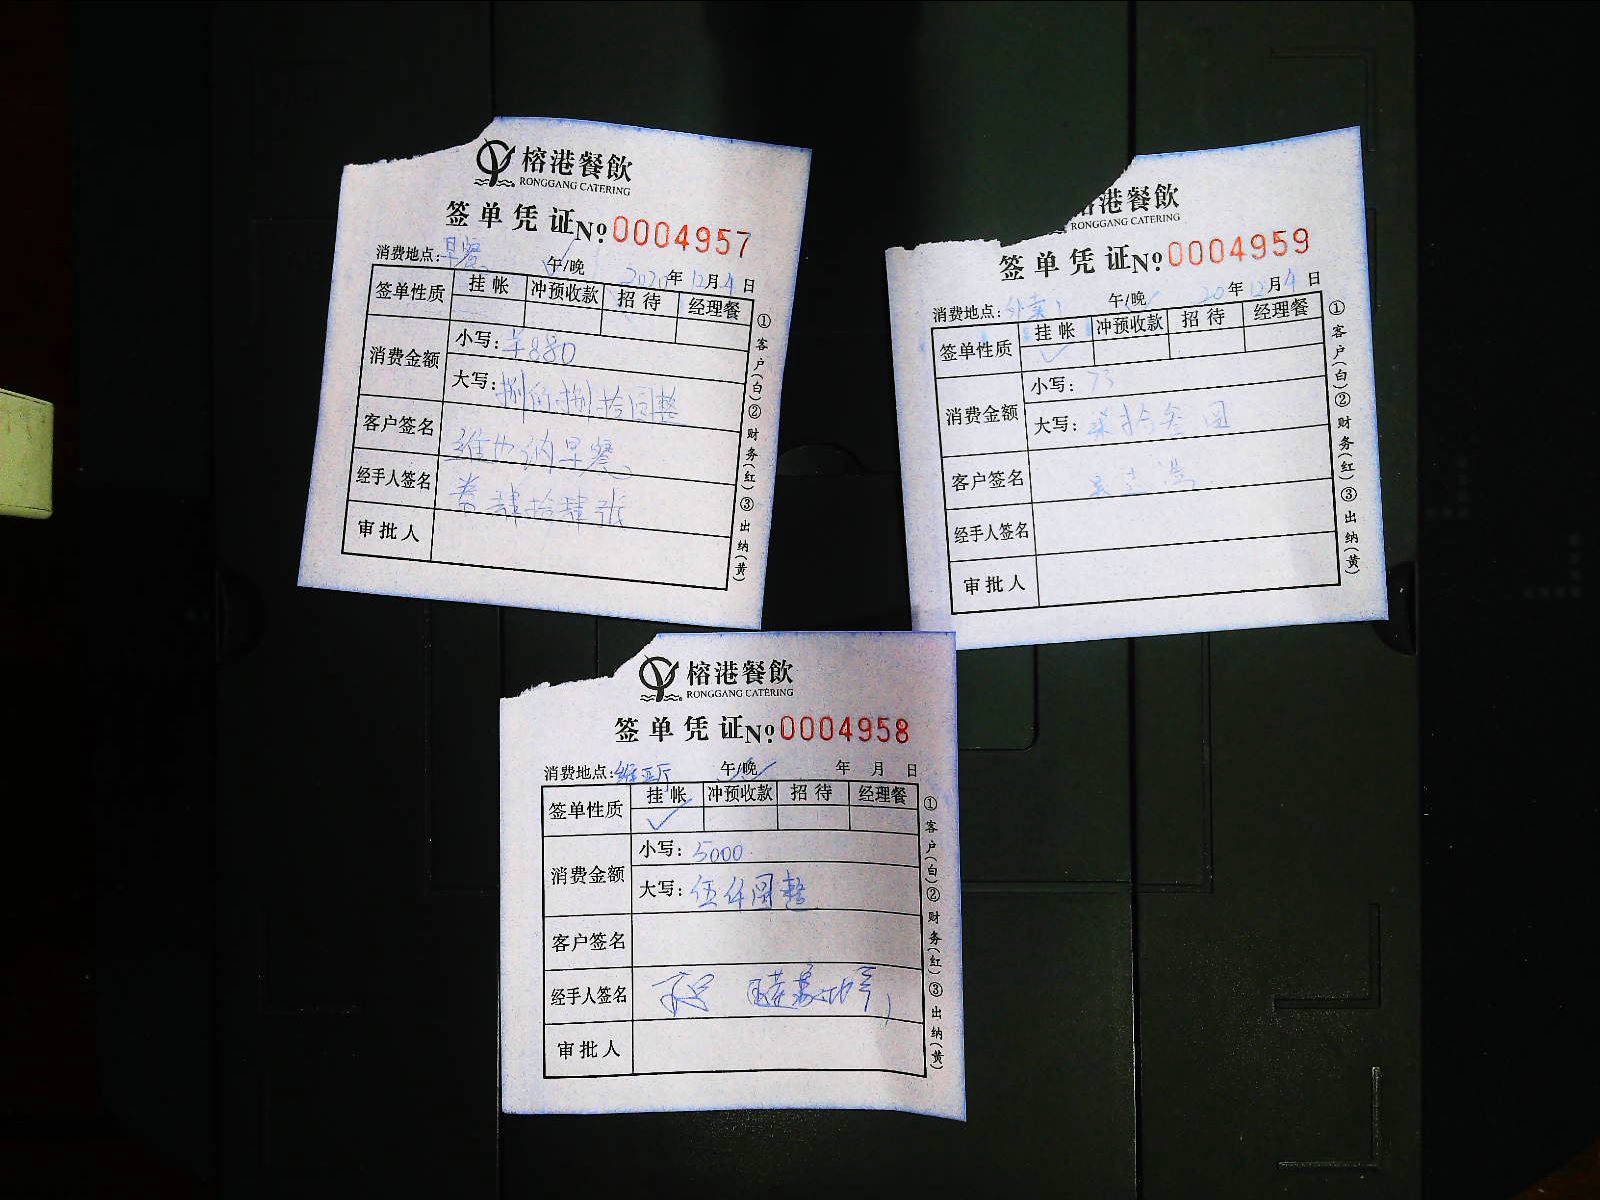 榕港餐飲
RONGGANG CATERING
签单凭证 № 0004957
消费地点: 早餐 午/晚 2020年12月4日
签单性质 挂帐 冲预收款 招待 经理餐
消费金额 小写: ¥880
大写: 捌佰捌拾圆整
客户签名 维也纳早餐
经手人签名 券肆拾肆张
审批人
①客户(白)②财务(红)③出纳(黄)
港餐飲
RONGGANG CATERING
签单凭证 № 0004959
消费地点: 外卖 午/晚 20年12月4日
签单性质 挂帐 冲预收款 招待 经理餐
消费金额 小写: 73
大写: 柒拾叁圆
客户签名
经手人签名
审批人
①客户(白)②财务(红)③出纳(黄)
榕港餐飲
RONGGANG CATERING
签单凭证 № 0004958
消费地点: 厅 午/晚 年 月 日
签单性质 挂帐 冲预收款 招待 经理餐
消费金额 小写: 5000
大写: 伍仟圆整
客户签名
经手人签名
审批人
①客户(白)②财务(红)③出纳(黄)